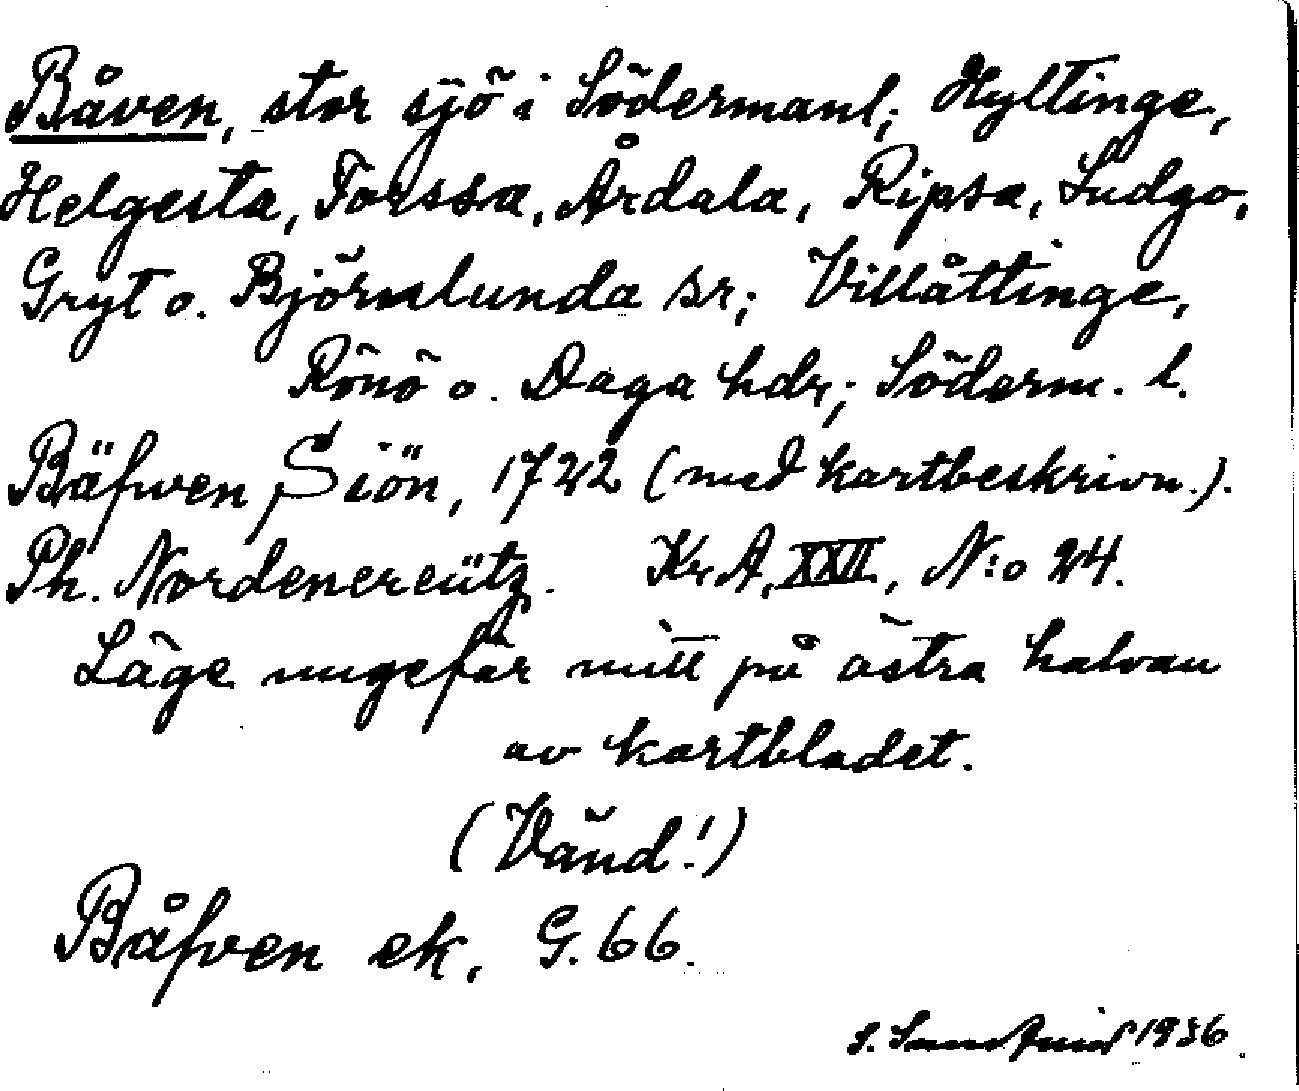 Båven, stor sjö i Södermanl; Hyltinge,
Helgesta, Torssa, Årdala, Ripsa, Ludgo,
Gryt o. Björnlunda sr; Villåttinge,
Rönö o. Daga hdr; Söderm. l.
Bäfwen Siön, 1722 (med kartbeskrivn.).
Ph. Nordencreütz. Kr.A. XXII, N:o 24.
Läge ungefär mitt på östra halvan
av kartbladet.
(Vänd!)
Båfven ek. G. 66.
S. 1936